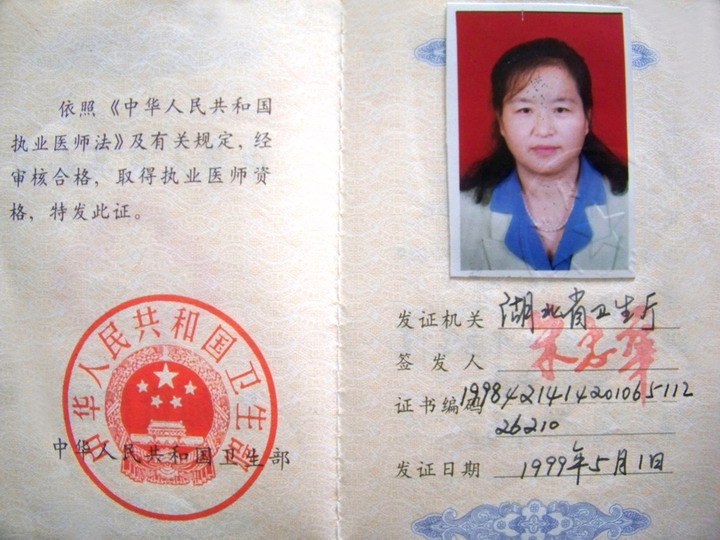 依照《中华人民共和国
执业医师法》及有关规定，经
审核合格，取得执业医师资
格，特发此证。
中华人民共和国卫生部
中华人民共和国卫生部
发证机关 湖北省卫生厅
签发人
证书编码 199842141420106511226210
发证日期 1999年5月1日